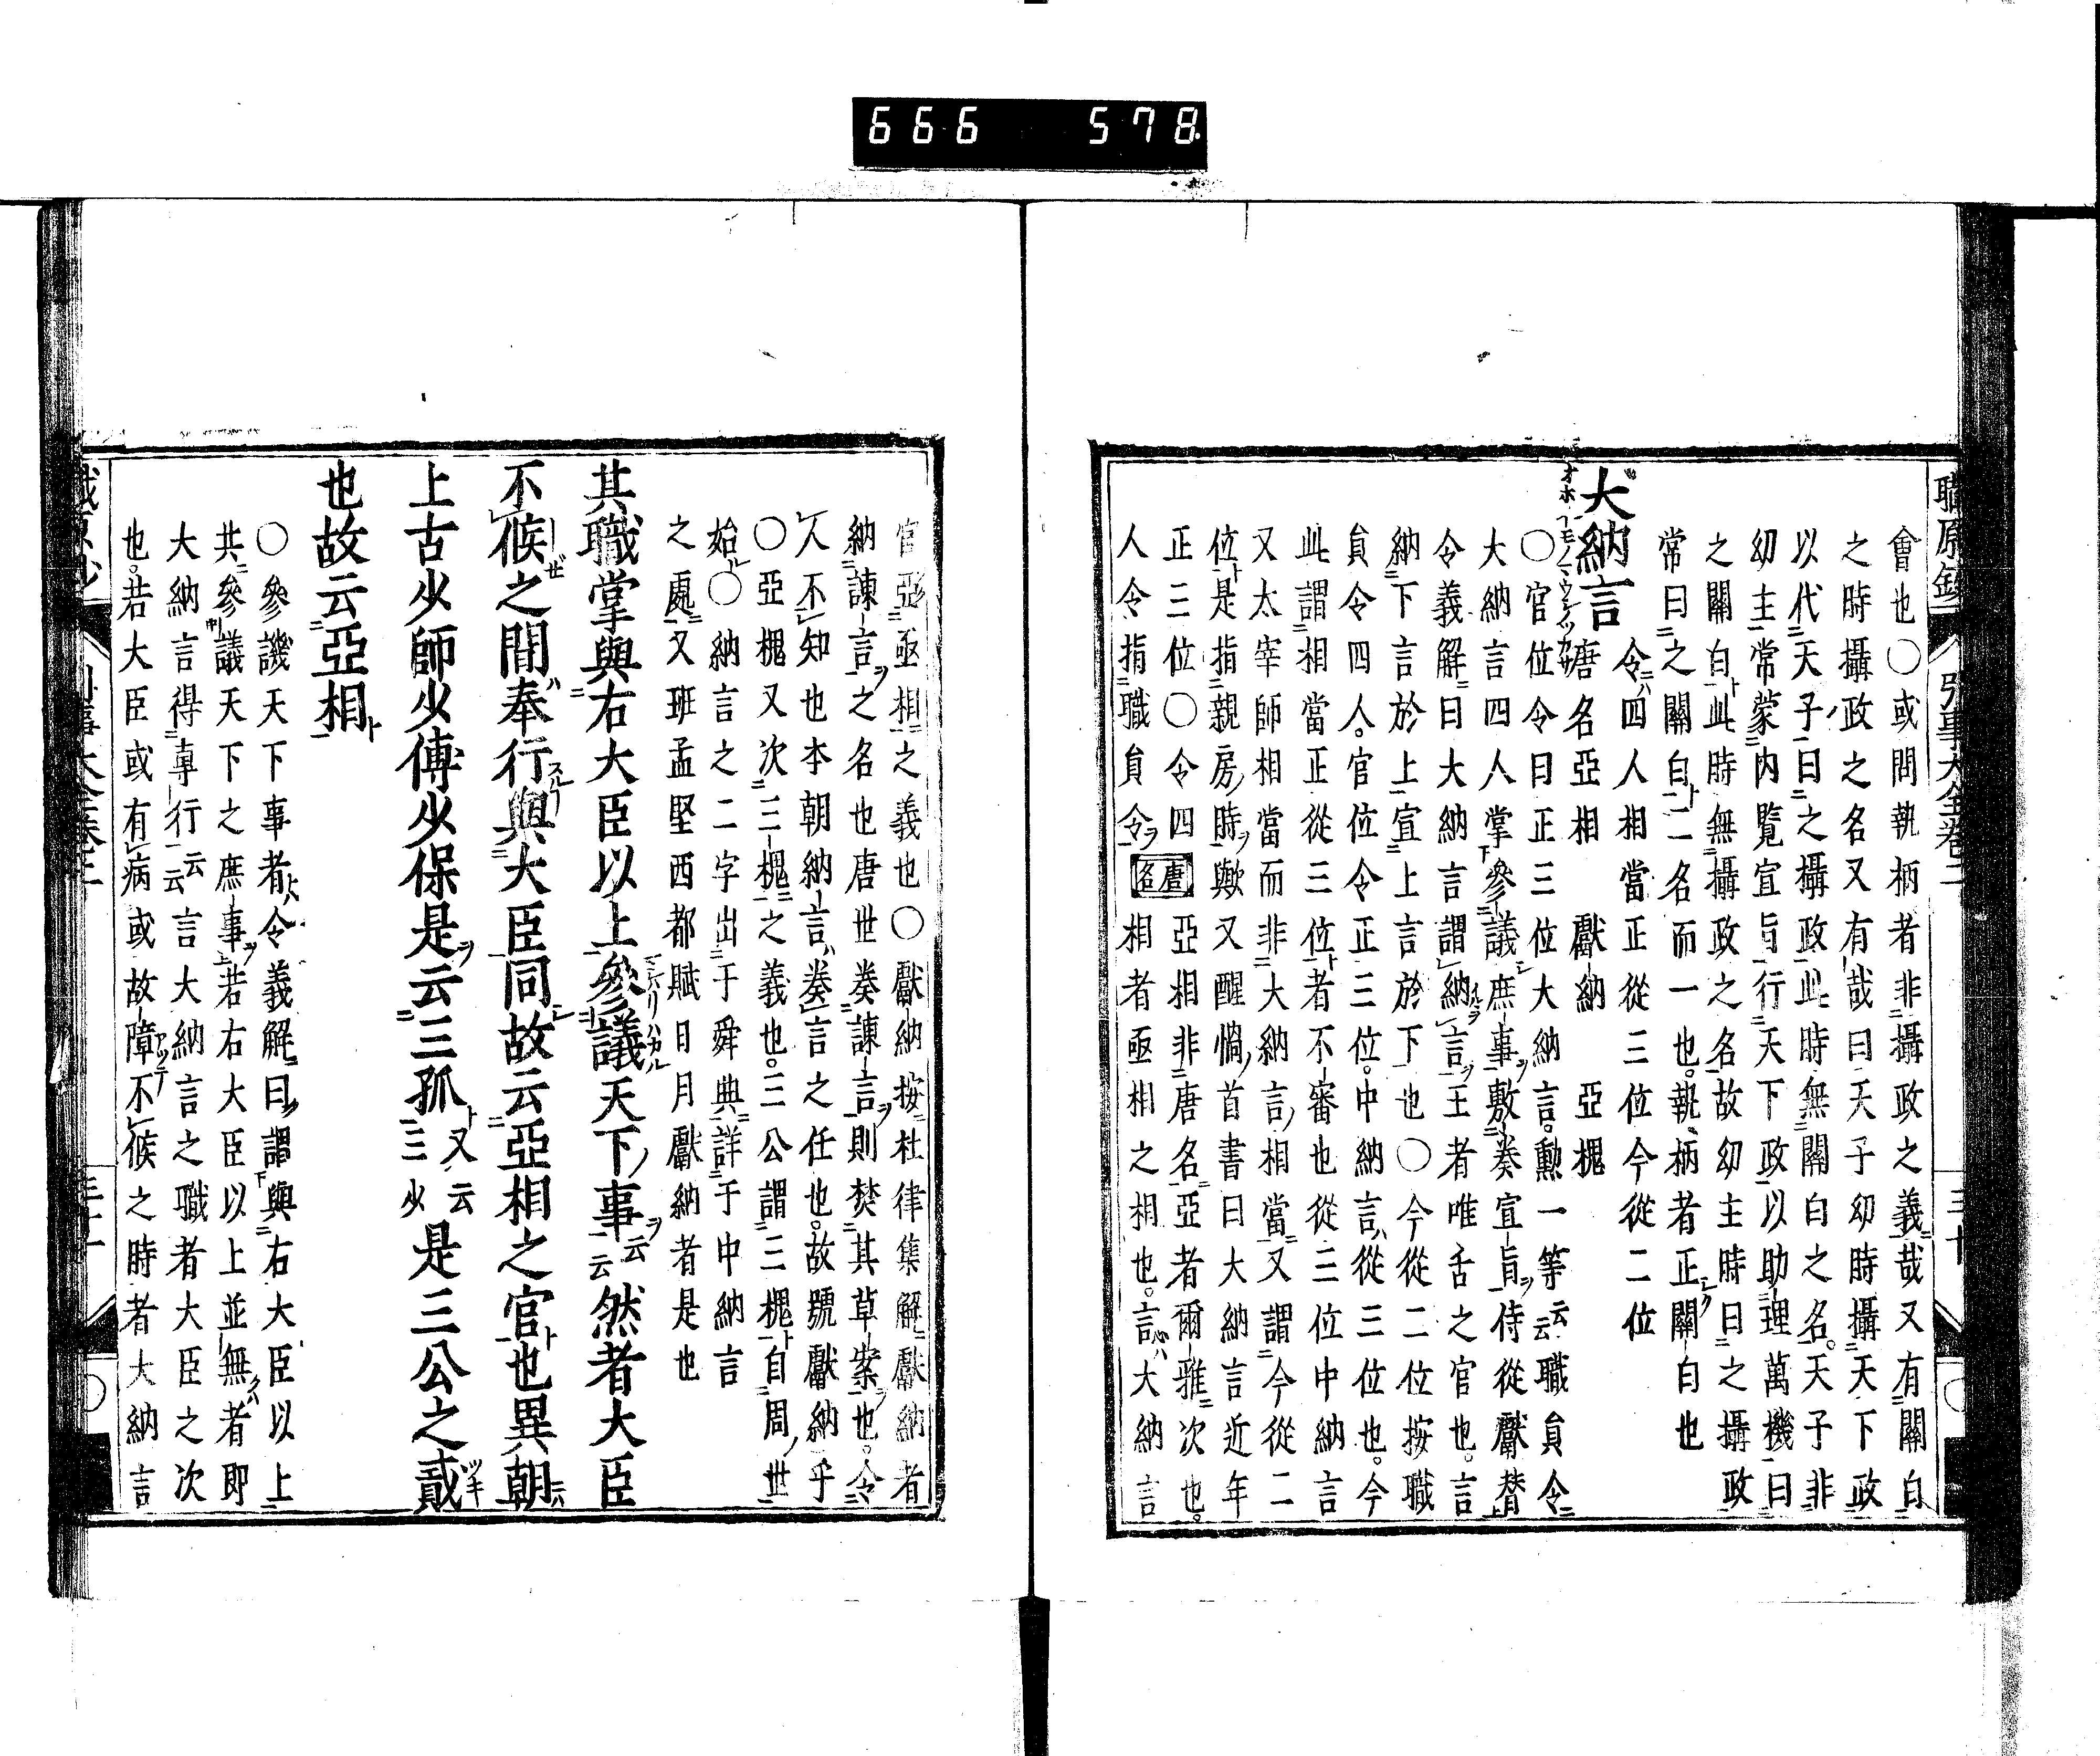 666 578
職原鈔 引事大全卷二 三十
會也○或問執柄者非攝政之義哉又有關白
之時攝政之名又有哉曰天子幼時攝天下政
以代天子曰之攝政此時無關白之名天子非
幼主常蒙内覽宣旨行天下政以助理萬機曰
之關白此時無攝政之名故幼主時曰之攝政
常曰之關白二名而一也執柄者正關白也
大納言 令四人相當正從三位今從二位
唐名亞相 獻納 亞槐
○官位令曰正三位大納言勳一等云云職員令
大納言四人掌參議庶事敷奏宣旨侍從獻替
令義解曰大納言謂納言王者唯舌之官也言
納下言於上宣上言於下也○今從二位按職
員令四人官位令正三位中納言從三位也今
此謂相當正從三位者不審也從三位中納言
又太宰師相當而非大納言相當又謂今從二
位是指親房時歟又醒惱首書曰大納言近年
正三位○令四
人令指職員令
唐名
亞相非唐名亞者爾雅次也
相者亟相之相也言大納言
官亞亟相之義也○獻納按杜律集解獻納者
納諫言之名也唐世奏諫言則焚其草案也令
人不知也本朝納言奏言之任也故號獻納乎
○亞槐又次三槐之義也三公謂三槐自周世
始○納言之二字出于舜典詳于中納言
之處又班孟堅西都賦日月獻納者是也
其職掌與右大臣以上參議天下事云云然者大臣
不候之間奉行與大臣同故云亞相之官也異朝
上古少師少傅少保是云三孤又云三少是三公之貳
也故云亞相
○參議天下事者令義解曰謂與右大臣以上
共參議天下之庶事若右大臣以上並無者即
大納言得專行云云言大納言之職者大臣之次
也若大臣或有病或故障不候之時者大納言